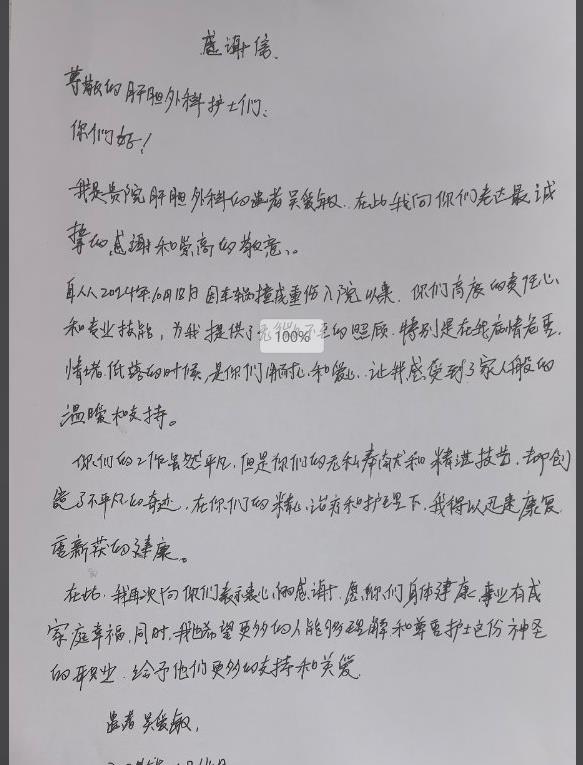 感谢信.
尊敬的肝胆外科护士们:
你们好!
我是贵院肝胆外科的患者吴爱敏. 在此我向你们表达最诚
挚的感谢和崇高的敬意.
自从2024年10月18日因车祸撞成重伤入院以来. 你们高度的责任心
和专业技能, 为我提供了无微不至的照顾. 特别是在我病情危重.
100%
情绪低落的时候, 是你们用耐心和爱心. 让我感受到了家人般的
温暖和支持。
你们的工作虽然平凡, 但是你们的无私奉献和精湛技艺. 却创
造了不平凡的奇迹. 在你们的精心治疗和护理下, 我得以迅速康复
重新获的健康。
在此. 我再次向你们表示衷心的感谢. 愿你们身体健康, 事业有成
家庭幸福, 同时, 我也希望更多的人能够理解和尊重护士这份神圣
的职业. 给予他们更多的支持和关爱.
患者 吴爱敏.